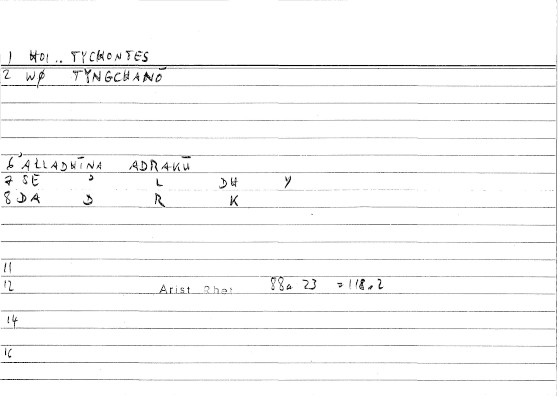 1 HOI .. TYCHONTES
2 WØ TYNGCHANŌ
6 'AŁLADHĪNA ADRAKŪ
7 SE ' L DH Y
8 DA D R K
11
12 Arist Rhet 88a 23 =118,2
14
16